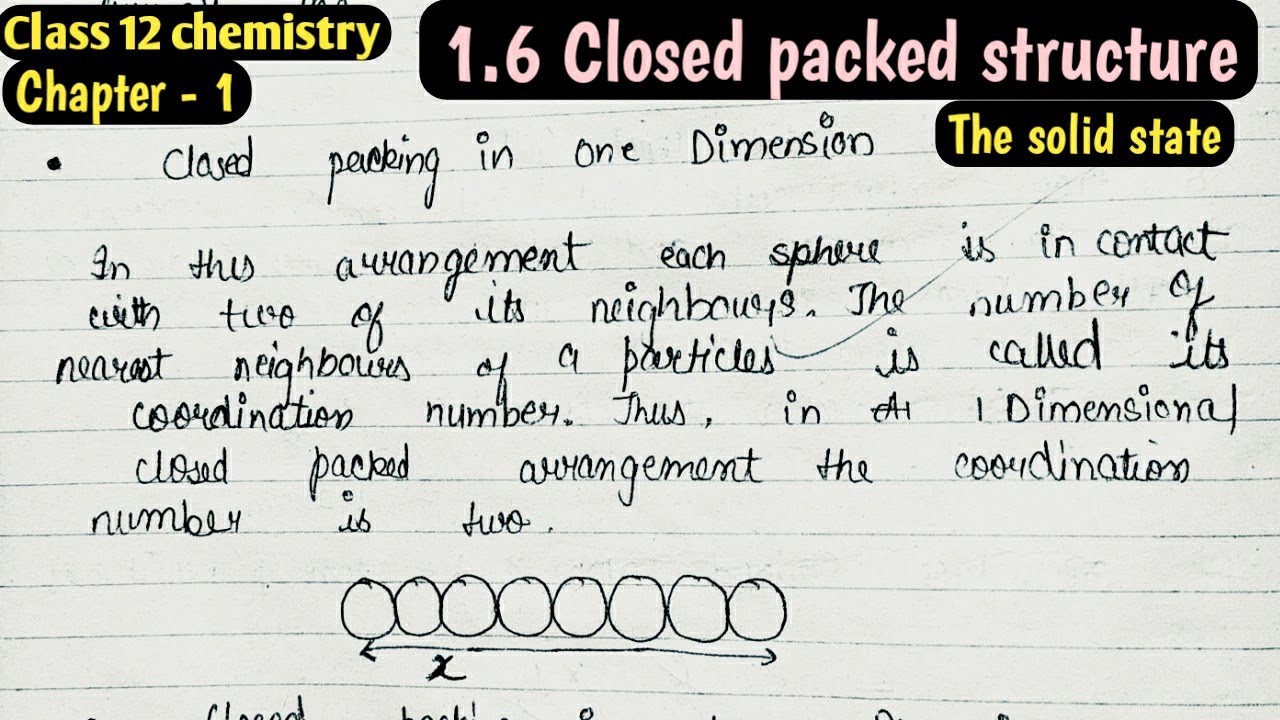 Class 12 chemistry
Chapter - 1
1.6 Closed packed structure
The solid state
• Closed packing in one Dimension
In this arrangement each sphere is in contact
with two of its neighbours. The number of
nearest neighbours of a particles is called its
coordination number. Thus, in 1 Dimensional
closed packed arrangement the coordination
number is two.
x
Closed